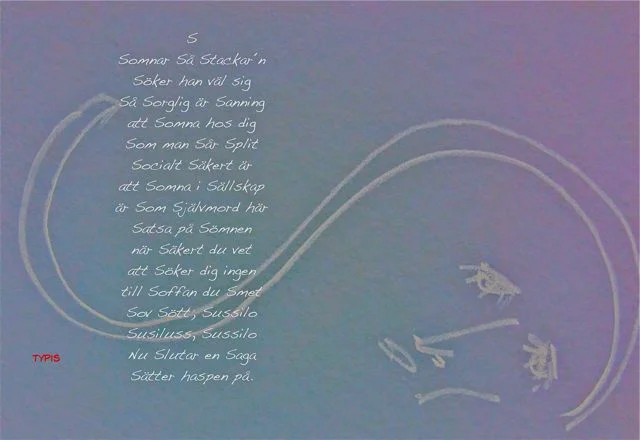 S
Somnar Så Stackar'n
Söker han väl sig
Så Sorglig är Sanning
att Somna hos dig
Som man Sår Split
Socialt Säkert är
att Somna i Sällskap
är Som Självmord här
Satsa på Sömnen
när Säkert du vet
att Söker dig ingen
till Soffan du Smet
Sov Sött, Sussilo
Susiluss, Sussilo
Nu Slutar en Saga
Sätter haspen på.
TYPIS